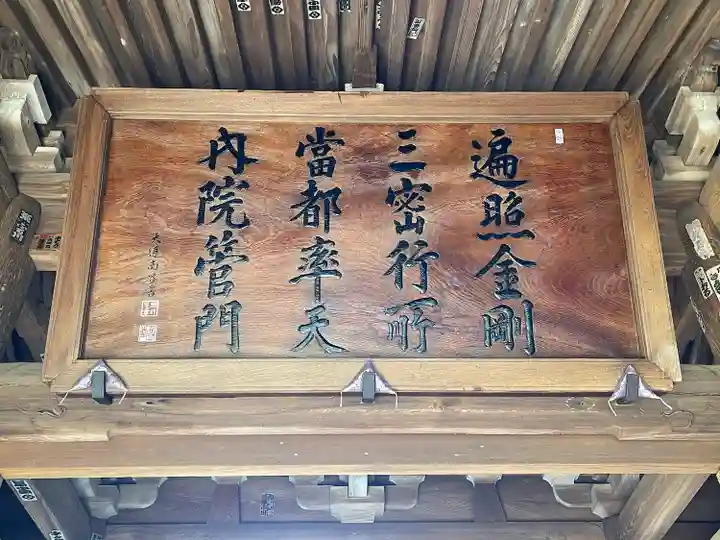 遍照金剛
三密行所
當都率天
内院管門